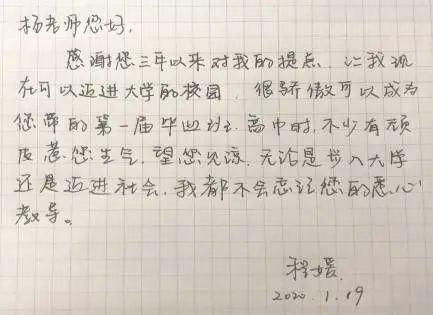 杨老师您好，
感谢您三年以来对我的提点，让我现
在可以迈进大学的校园，很骄傲可以成为
您带的第一届毕业生，高中时，不少有顽
皮惹您生气，望您见谅，无论是步入大学
还是迈进社会，我都不会忘记您的悉心
教导。
程媛
2020.1.19